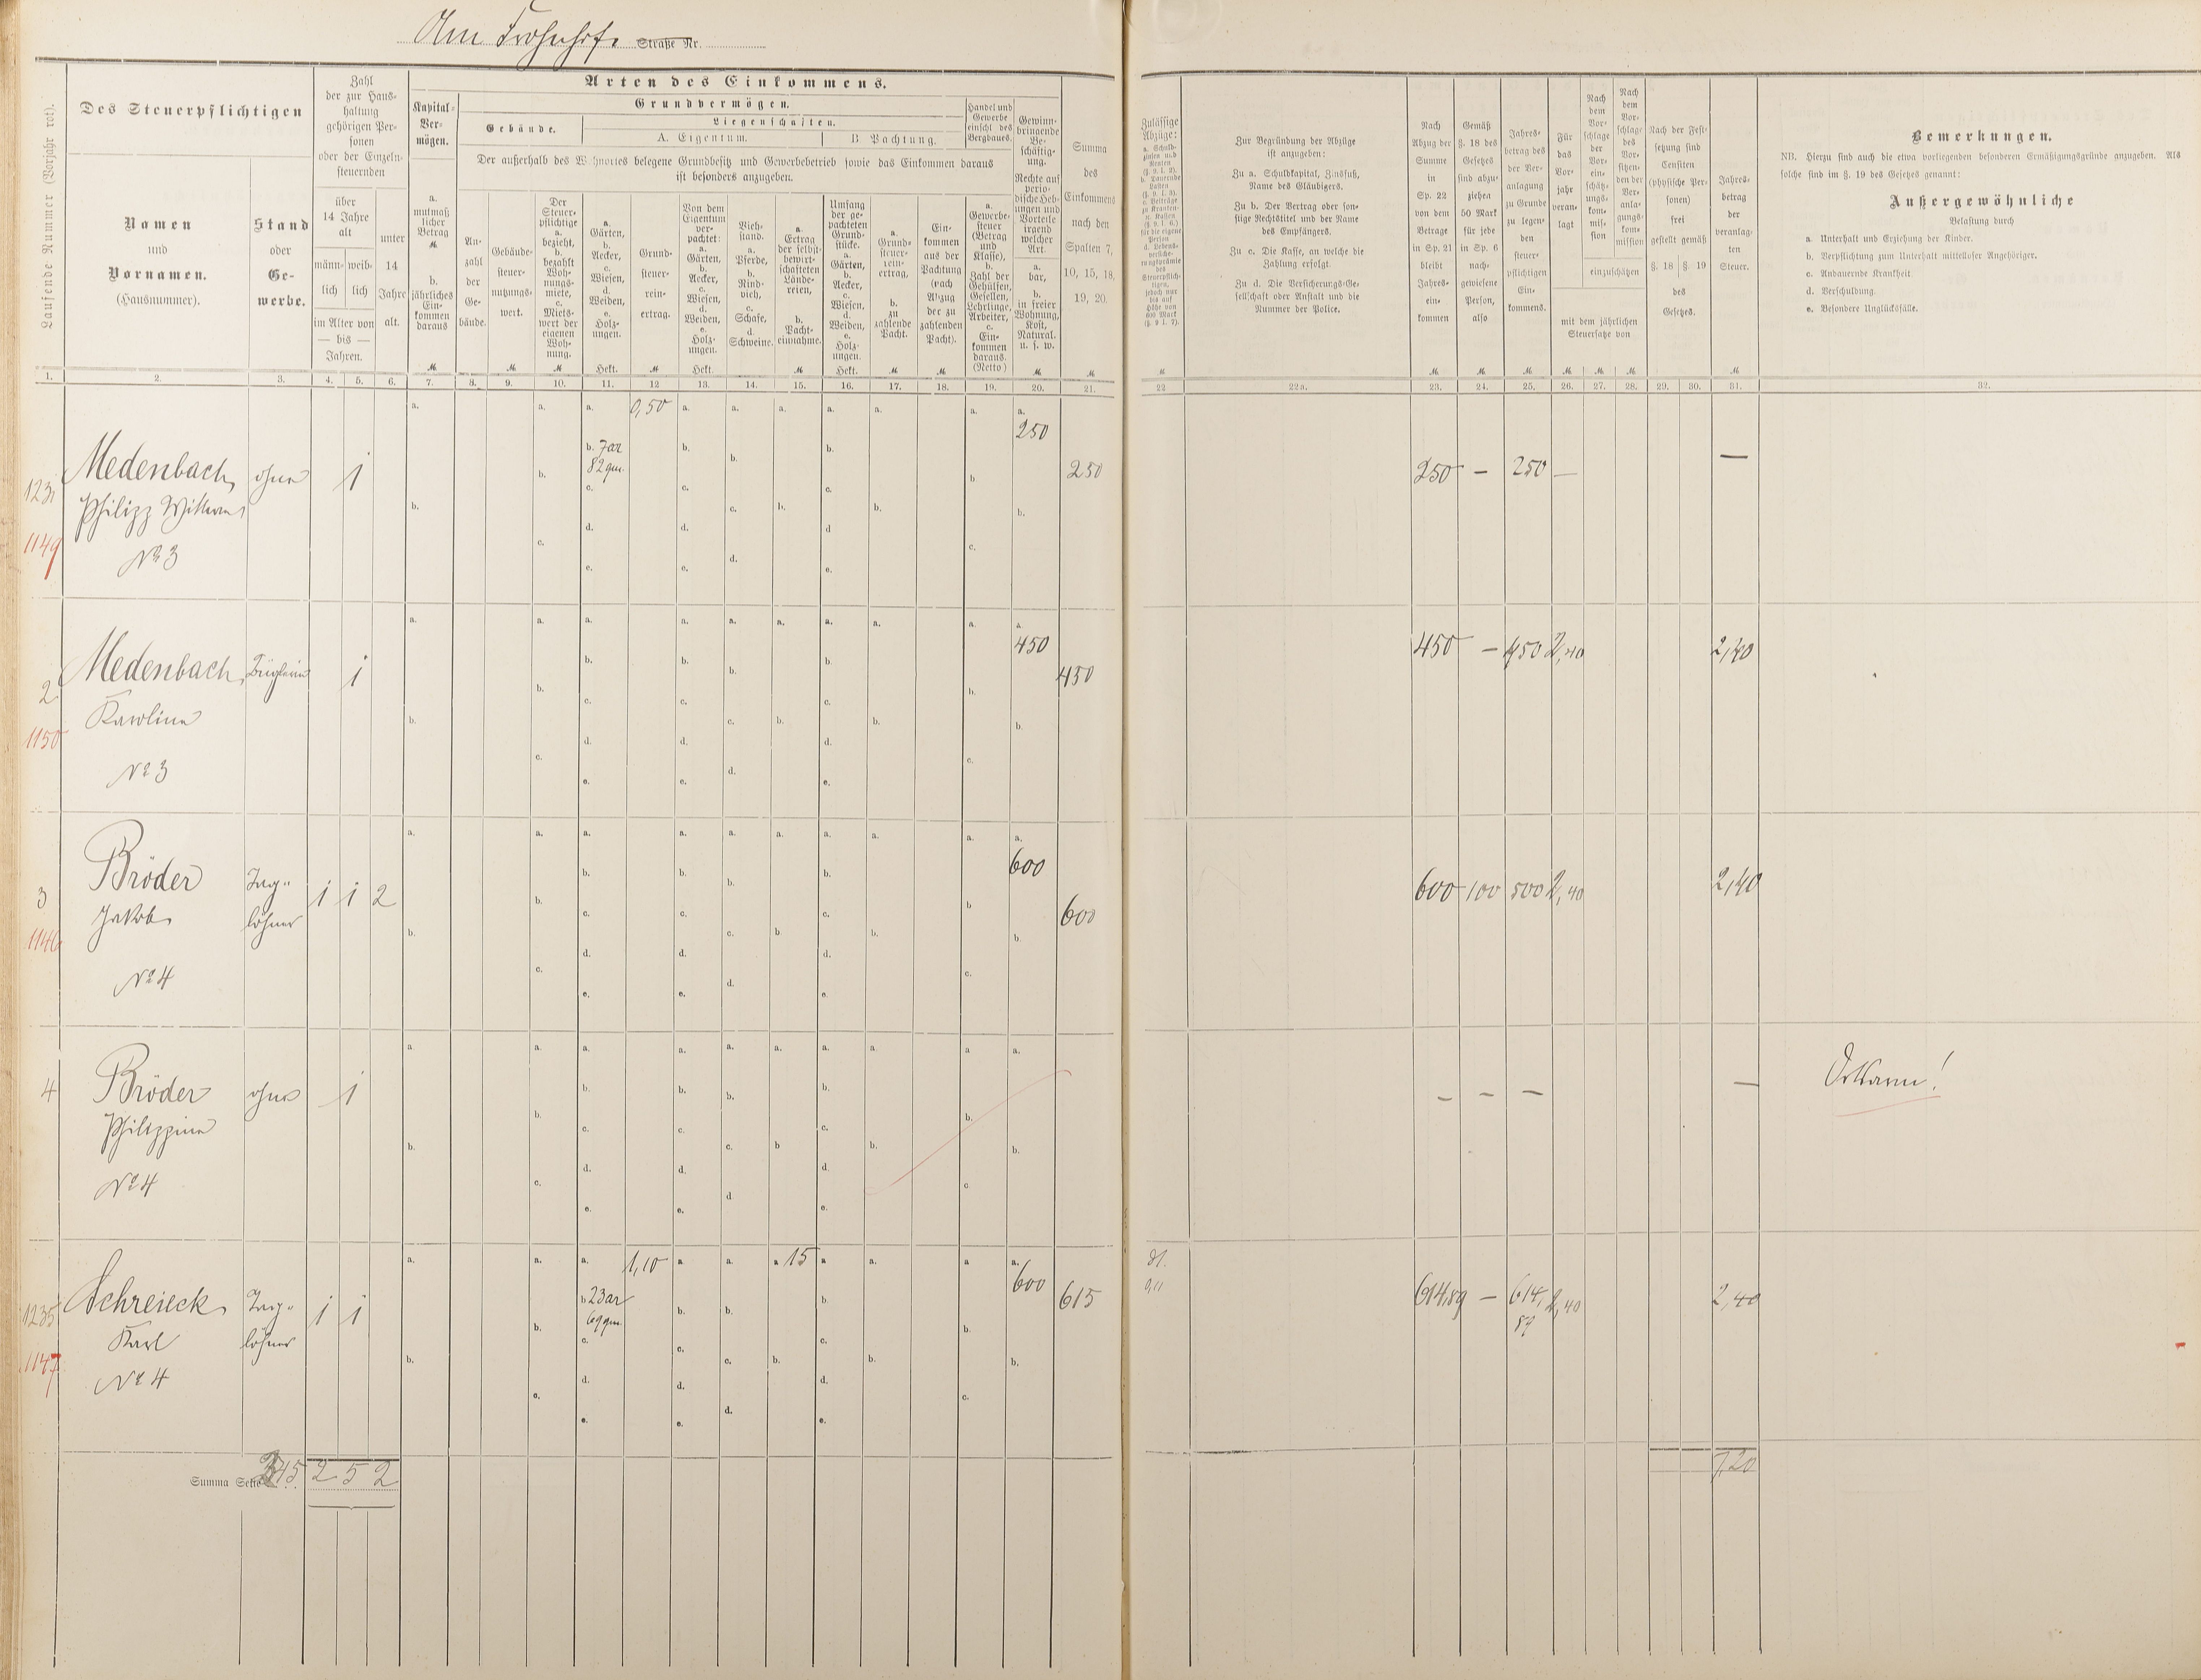 Am Frohnhof. Straße Nr.
Laufende Nummer (Vorjahr rot).
Des Steuerpflichtigen
Namen
und
Vornamen.
(Hausnummer).
Stand
oder
Ge-
werbe.
Zahl
der zur Haus-
haltung
gehörigen Per-
sonen
oder der Einzeln-
steuernden
über
14 Jahre
alt
männ- weib-
lich lich
im Alter von
— bis —
Jahren.
unter
14
Jahre
alt.
Arten des Einkommens.
Kapital-
Ver-
mögen.
a.
mutmaß
licher
Betrag
M
b.
jährliches
Ein-
kommen
daraus
M
Grundvermögen.
Gebäude.
Liegenschaften.
A. Eigentum.
B Pachtung.
Der außerhalb des Wohnortes belegene Grundbesitz und Gewerbebetrieb sowie das Einkommen daraus
ist besonders anzugeben.
An-
zahl
der
Ge-
bäude.
Gebäude-
steuer-
nutzungs-
wert.
M
Der
Steuer-
pflichtige
a.
bezieht,
b.
bezahlt
Woh-
nungs-
miete,
c.
Miets-
wert der
eigenen
Woh-
nung.
M
a.
Gärten,
b.
Aecker,
c.
Wiesen,
d.
Weiden,
e.
Holz-
ungen.
Hekt.
Grund-
steuer-
rein-
ertrag.
M
Von dem
Eigentum
ver-
pachtet:
a.
Gärten,
b.
Aecker,
c.
Wiesen,
d.
Weiden,
e.
Holz-
ungen.
Hekt.
Vieh-
stand.
a.
Pferde,
b.
Rind-
vieh,
c.
Schafe,
d.
Schweine.
a.
Ertrag
der selbst-
bewirt-
schafteten
Lände-
reien,
b.
Pacht-
einnahme.
M
Umfang
der ge-
pachteten
Grund-
stücke.
a.
Gärten,
b.
Aecker,
c.
Wiesen,
d.
Weiden,
e.
Holz-
ungen.
Hekt.
a.
Grund-
steuer-
rein-
ertrag,
b.
zu
zahlende
Pacht.
M
Ein-
kommen
aus der
Pachtung
(nach
Abzug
der zu
zahlenden
Pacht).
M
Handel und
Gewerbe
einschl des
Bergbaues.
a.
Gewerbe-
steuer
(Betrag
und
Klasse),
b.
Zahl der
Gehülfen,
Gesellen,
Lehrlinge,
Arbeiter,
c.
Ein-
kommen
daraus.
(Netto)
Gewinn-
bringende
Be-
schäftig-
ung.
Rechte auf
perio-
dische Heb-
ungen und
Vorteile
irgend
welcher
Art.
a.
bar,
b.
in freier
Wohnung,
Kost,
Natural.
u. s. w.
M
Summa
des
Einkommens
nach den
Spalten 7,
10, 15, 18,
19, 20.
M
Zulässige
Abzüge:
Zur Begründung der Abzüge
ist anzugeben:
Zu a. Schuldkapital, Zinsfuß,
Name des Gläubigers.
Zu b. Der Vertrag oder son-
stige Rechtstitel und der Name
des Empfängers.
Zu c. Die Kasse, an welche die
Zahlung erfolgt.
Zu d. Die Versicherungs-Ge-
sellschaft oder Anstalt und die
Nummer der Police.
Nach
Abzug der
Summe
in
Sp. 22
von dem
Betrage
in Sp. 21
bleibt
Jahres-
ein-
kommen
M
Gemäß
§. 18 des
Gesetzes
sind abzu-
ziehen
50 Mark
für jede
in Sp. 6
nach-
gewiesene
Person,
also
M
Jahres-
betrag des
der Ver-
anlagung
zu Grunde
zu legen-
den
steuer-
pflichtigen
Ein-
kommens.
M
Für
das
Vor-
jahr
veran-
lagt
Nach
dem
Vor-
schlage
der
Vor-
ein-
schätz-
ungs-
kom-
mis-
sion
Nach
dem
Vor-
schlage
des
Vor-
sitzen-
den der
Ver-
anla-
gungs-
kom-
mission
einzuschätzen
mit dem jährlichen
Steuersatze von
M M M
Nach der Fest-
setzung sind
Censiten
(physische Per-
sonen)
frei
gestellt gemäß
§. 18 §. 19
des
Gesetzes.
Jahres-
betrag
der
veranlag-
ten
Steuer.
M
Bemerkungen.
NB. Hierzu sind auch die etwa vorliegenden besonderen Ermäßigungsgründe anzugeben. Als
solche sind im §. 19 des Gesetzes genannt:
Außergewöhnliche
Belastung durch
a. Unterhalt und Erziehung der Kinder.
b. Verpflichtung zum Unterhalt mittelloser Angehöriger.
c. Andauernde Krankheit
d. Verschuldung.
e. Besondere Unglücksfälle.
1. 2. 3. 4. 5. 6. 7. 8. 9. 10. 11. 12 13. 14. 15. 16. 17. 18. 19. 20. 21. 22 22a. 23. 24. 25. 26. 27. 28. 29. 30. 31. 32.
1231 Medenbach, ohne 1 0,50 250
b. 7ar
82qm.
250 250 — 250 — —
Philipp Witwe
1149
No 3
2 Medenbach, Büglerin 1 450 450 450 — 450 2,40 2,40
Karoline
1150
No 3
3 Bröder Tag- 1 1 2 600 600 600 100 500 2,40 2,40
Jakob löhner
1146
No 4
4 Bröder ohne 1 — — — —
Philippine
No 4
1235 Schreieck, Tag- 1 1 1,10 15 600 615
b 23ar
69qm.
d.
0,11
614,89 — 614,89 2,40 2,40
Karl löhner
1147
No 4
Summa Seite 245. 2 5 2 7,20